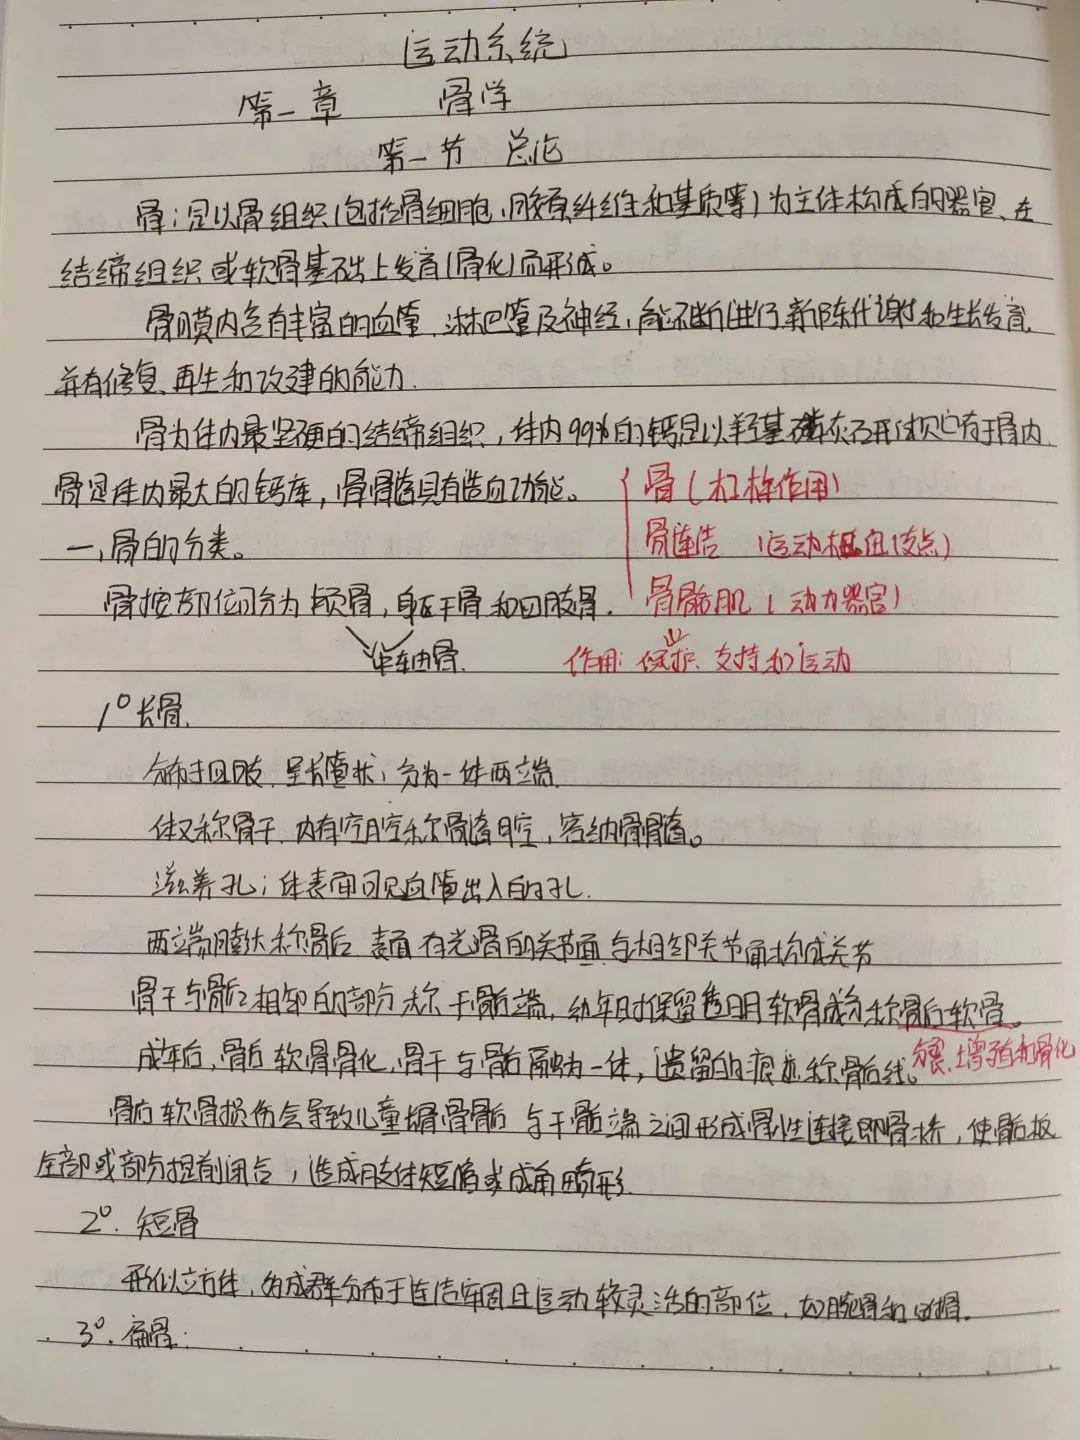 运动系统
第一章 骨学
第一节 总论
骨：是以骨组织（包括骨细胞、胶原纤维和基质等）为主体构成的器官、在
结缔组织或软骨基础上发育（骨化）而形成。
骨膜内含有丰富的血管、淋巴管及神经，能不断进行新陈代谢和生长发育，
并有修复、再生和改建的能力.
骨为体内最坚硬的结缔组织，体内99%的钙是以羟基磷灰石形式贮存于骨内，
骨是体内最大的钙库，骨骨髓具有造血功能。
骨（杠杆作用）
一，骨的分类。
骨连结（运动枢纽支点）
骨按部位可分为颅骨，躯干骨和四肢骨.
骨骼肌（动力器官）
中轴骨.
作用：保护、支持和运动
1° 长骨.
分布于四肢，呈长管状，分为一体两端.
体又称骨干. 内有空腔称骨髓腔，容纳骨骨髓。
滋养孔；体表面可见血管出入的孔.
两端膨大称骨后 表面有光滑的关节面与相邻关节面构成关节
骨干与骨后相邻的部分称干骺端，幼年时保留透明软骨成分称骨后软骨。
分裂、增殖和骨化
成年后，骨后软骨骨化，骨干与骨后融为一体，遗留的痕迹称骨后线。
骨后软骨损伤会导致儿童 骨骺后与干骺端之间形成骨性连接即骨桥，使骺后板
全部或部分提前闭合，造成肢体短缩或成角畸形.
2°. 短骨
形似立方体，多成群分布于连结牢固且运动较灵活的部位，如腕骨和跗骨.
3°. 扁骨：